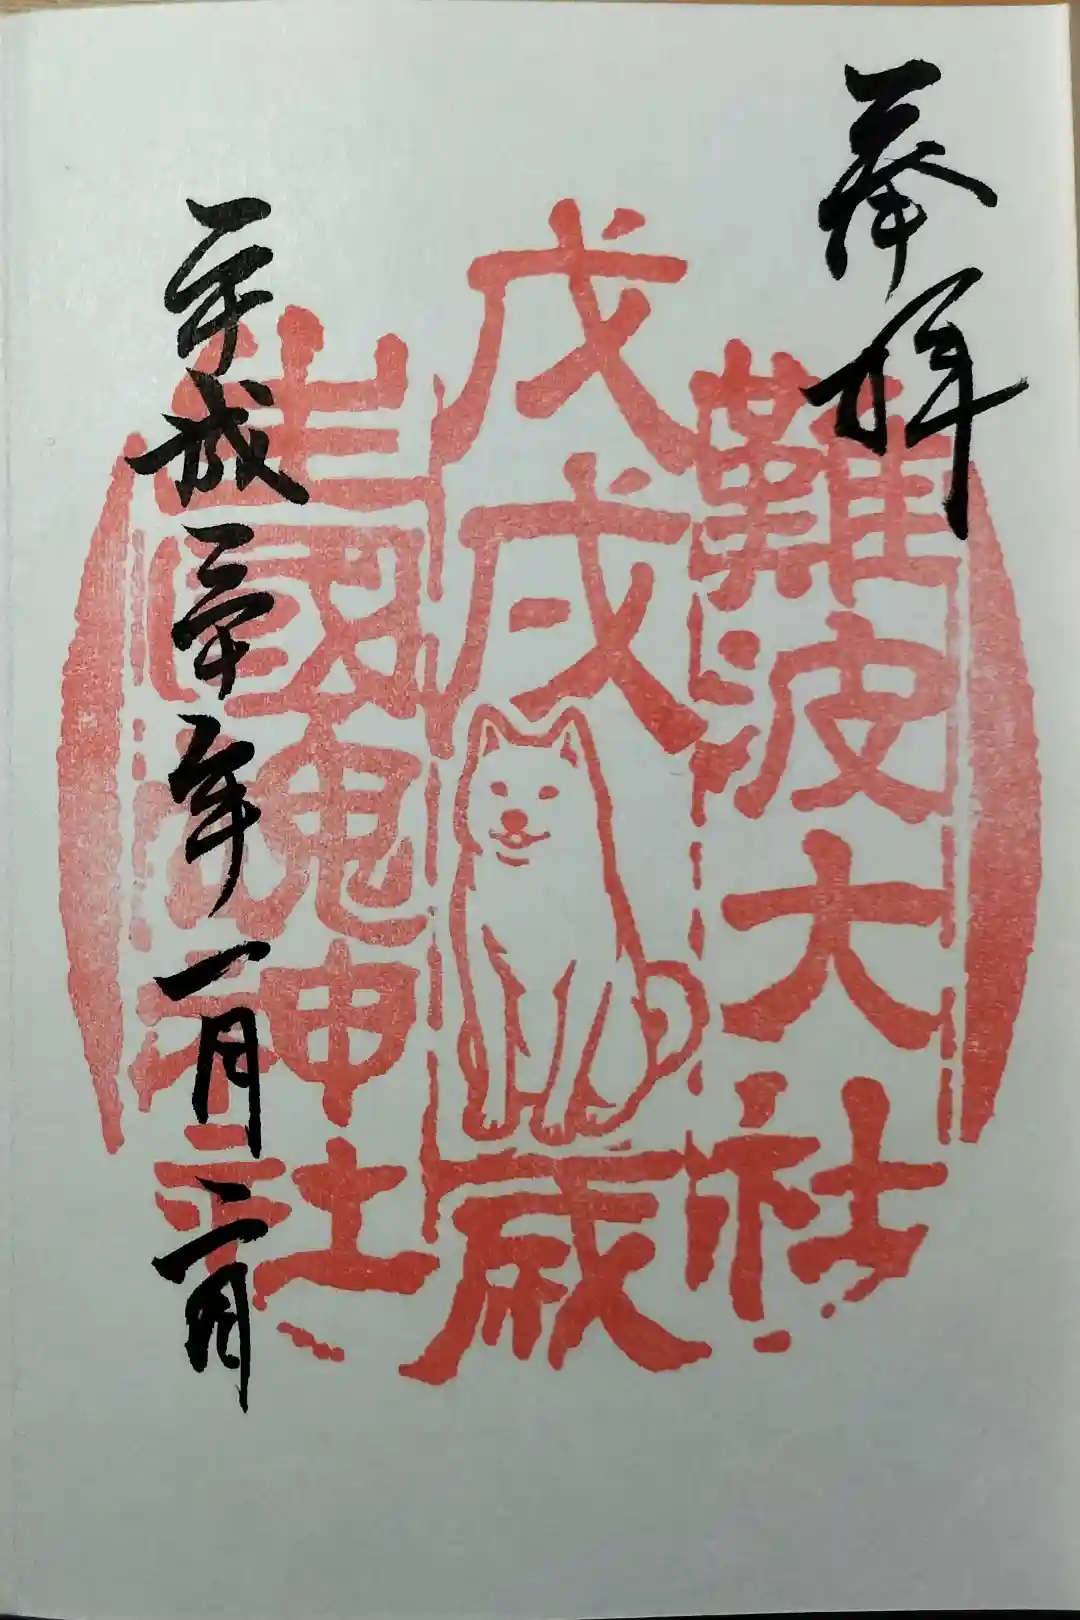 奉拝
難波大社
戊戌
歳
生國魂神社
平成三十年一月二日